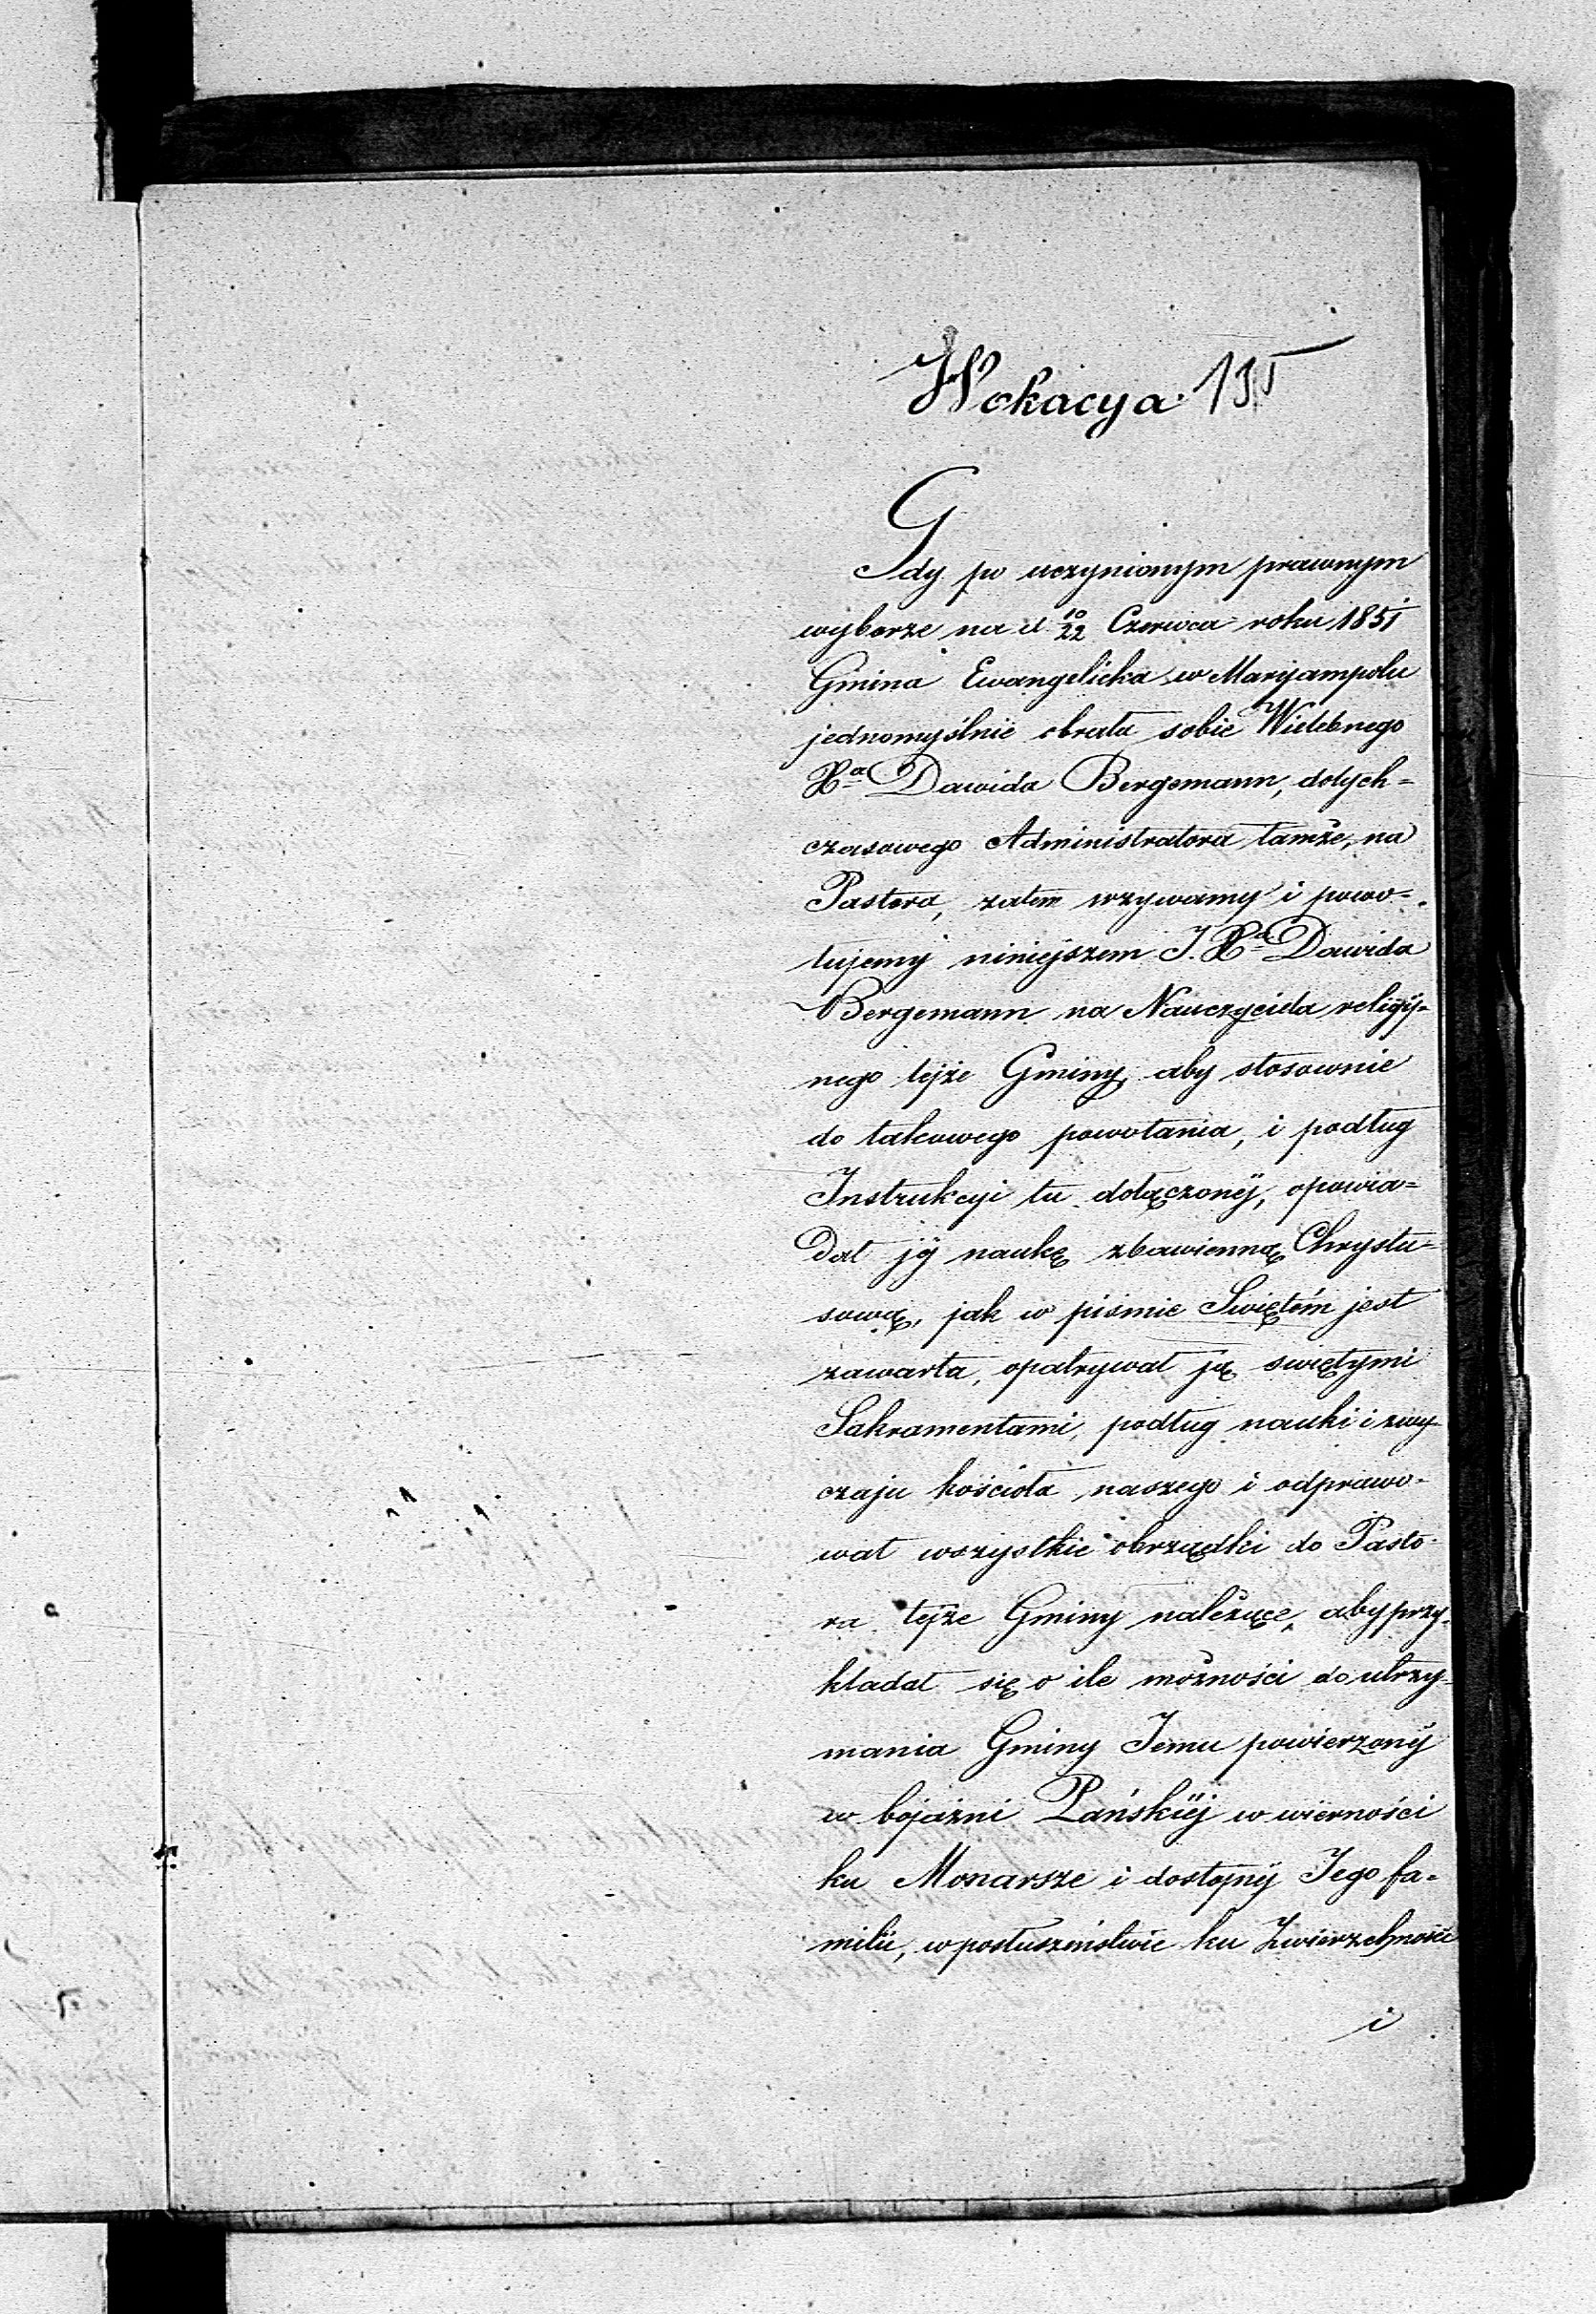 Wokacya. 135
Gdy po uczynionym prawnym
wyborze na d. 10/22 Czerwca roku 1851
Gmina Ewangelicka w Maryampolu
jednomyślnie obrała sobie Wielebnego
Xa Dawida Bergemann, dotych=
czasowego Administratora tamże, na
Pastora, zatem wzywamy i powo=
łujemy niniejszem J. Xa Dawida
Bergemann na Nauczyciela religij=
nego tejże Gminy, aby stosownie
do takowego powołania, i podług
Instrukcyi tu dołączonéj, opowia=
dał jéj naukę zbawienną Chrystu=
sową, jak w piśmie Swiętém jest
zawarta, opatrywał ją swiętymi
Sakramentami, podług nauki i zwy-
czaju kościoła naszego i odprawo-
wał wszystkie obrządki do Pasto-
ra tejże Gminy należące, aby przy-
kładał się o ile możności do utrzy-
mania Gminy Jemu powierzonéj
w bojaźni Pańskiéj w wierności
ku Monarsze i dostojnéj Jego fa=
milii, w posłuszeństwie ku Zwierzchności
i